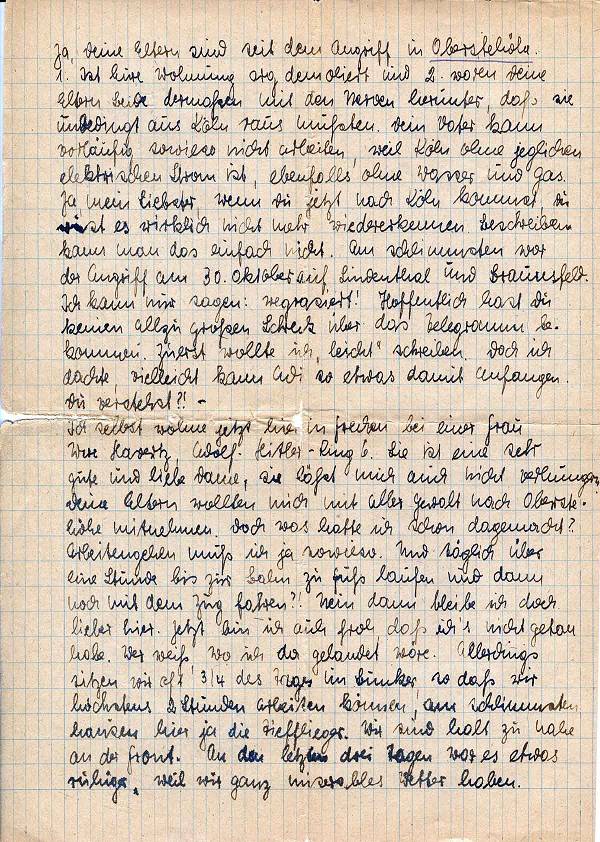 Ja, deine Eltern sind seit dem Angriff in Oberstehöhe.
1. ist ihre Wohnung arg demoliert und 2. waren deine
Eltern beide dermaßen mit den Nerven herunter, daß sie
unbedingt aus Köln raus mußten. Dein Vater kann
vorläufig sowieso nicht arbeiten, weil Köln ohne jeglichen
elektrischen Strom ist, ebenfalls ohne Wasser und Gas.
Ja mein Liebster, wenn du jetzt nach Köln kommst, du
wirst es wirklich nicht mehr wiedererkennen. Beschreiben
kann man das einfach nicht. Am schlimmsten war
der Angriff am 30. Oktober auf Lindenthal und Braunsfeld.
Ich kann nur sagen: wegrasiert! Hoffentlich hast du
keinen allzu großen Schreck über das Telegramm be-
kommen. Zuerst wollte ich „leicht" schreiben. Doch ich
dachte, vielleicht kann Adi so etwas damit anfangen.
Du verstehst?! -
Ich selbst wohne jetzt hier in Frechen bei einer Frau
Wwe Havertz, Adolf-Hitler-Ring 6. Sie ist eine sehr
gute und liebe Dame, sie läßt mich auch nicht verhungern.
Deine Eltern wollten mich mit aller Gewalt nach Oberste-
höhe mitnehmen, doch was hätte ich schon dagemacht?
Arbeitengehen muß ich ja sowieso. Und täglich über
eine Stunde bis zur Bahn zu Fuß laufen und dann
noch mit dem Zug fahren?! Nein dann bleibe ich doch
lieber hier. Jetzt bin ich auch froh, daß ich's nicht getan
habe. Wer weiß, wo ich da gelandet wäre. Allerdings
sitzen wir oft 3/4 des Tages im Bunker so daß wir
höchstens 2 Stunden arbeiten können, am schlimmsten
hausen hier ja die Tiefflieger. Wir sind halt zu nahe
an der Front. An den letzten drei Tagen war es etwas
ruhiger, weil wir ganz miserables Wetter haben.